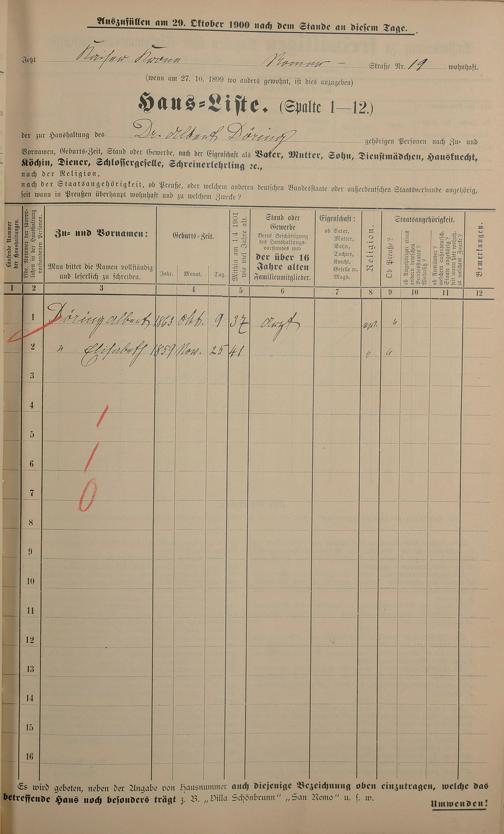 Auszufüllen am 29. Oktober 1900 nach dem Stande an diesem Tage.
Jetzt Kaiser Krone Römer - Straße Nr. 19 wohnhaft.
(wenn am 27. 10. 1899 wo anders gewohnt, ist dies anzugeben)
Haus-Liste. (Spalte 1—12.)
der zur Haushaltung des Dr. Albert Döring gehörigen Personen nach Zu- und
Vornamen, Geburts-Zeit, Stand oder Gewerbe, nach der Eigenschaft als Vater, Mutter, Sohn, Dienstmädchen, Hausknecht,
Köchin, Diener, Schlossergeselle, Schreinerlehrling ꝛc.,
nach der Religion,
nach der Staatsangehörigkeit, ob Preuße, oder welchem anderen deutschen Bundesstaate oder außerdeutschen Staatsverbande angehörig,
seit wann in Preußen überhaupt wohnhaft und zu welchem Zwecke?
Laufende Nummer der Haushaltungen.
Zu- und Vornamen:
Man bittet die Namen vollständig und leserlich zu schreiben.
Geburts-Zeit.
Jahr. Monat. Tag.
Mithin am 1/4 1901 wie viel Jahre alt.
Stand oder
Gewerbe
der über 16
Jahre alten
Familienmitglieder.
Eigenschaft:
ob Vater,
Mutter,
Sohn,
Tochter,
Knecht,
Geselle u.
Magd.
Religion.
Staatsangehörigkeit.
Ob Preuße?
Bemerkungen.
1 2 3 4 5 6 7 8 9 10 11 12
1 Döring Albert 1863 Okt. 9 37 Arzt ev. "
2 " Elisabeth 1859 Nov. 25 41 " "
3
4
1
5
6
1
7
0
8
9
10
11
12
13
14
15
16
Es wird gebeten, neben der Angabe von Hausnummer auch diejenige Bezeichnung oben einzutragen, welche das
betreffende Haus noch besonders trägt z. B. „Villa Schönbrunn" „San Remo" u. s. w.
Umwenden!